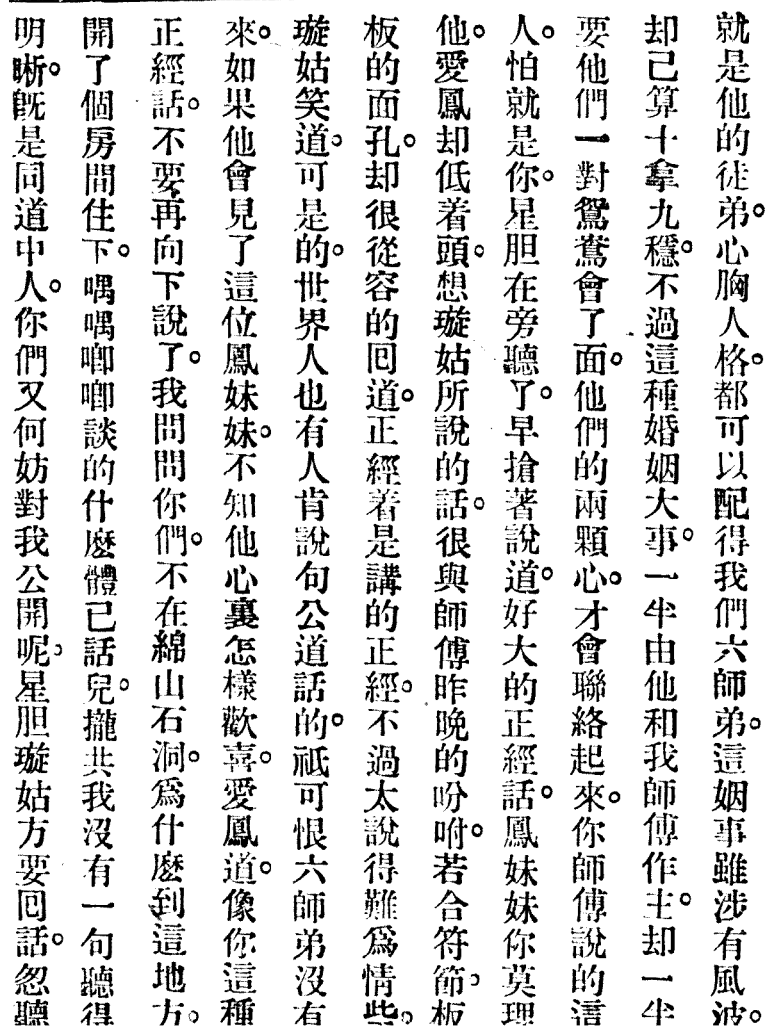 就是他的徒弟。心胸人格。都可以配得我們六師弟。這姻事雖涉有風波。
却已算十拿九穩。不過這種婚姻大事。一半由他和我師傅作主。却一半
要他們一對鴛鴦會了面。他們的兩顆心。才會聯絡起來。你師傅說的這
人。怕就是你。星胆在旁聽了。早搶著說道。好大的正經話。鳳妹妹你莫理
他。愛鳳却低着頭。想璇姑所說的話。很與師傅昨晚的吩咐。若合符節。板
板的面孔。却很從容的囘道。正經着是講的正經。不過太說得難爲情些。
璇姑笑道。可是的。世界人也有人肯說句公道話的。祇可恨六師弟沒有
來。如果他會見了這位鳳妹妹。不知他心裏怎樣歡喜。愛鳳道。像你這種
正經話。不要再向下說了。我問問你們。不在綿山石洞。爲什麽到這地方。
開了個房間住下。喁喁唧唧談的什麽體己話兒。攏共我沒有一句聽得
明晰。旣是同道中人。你們又何妨對我公開呢。星胆璇姑方要囘話。忽聽